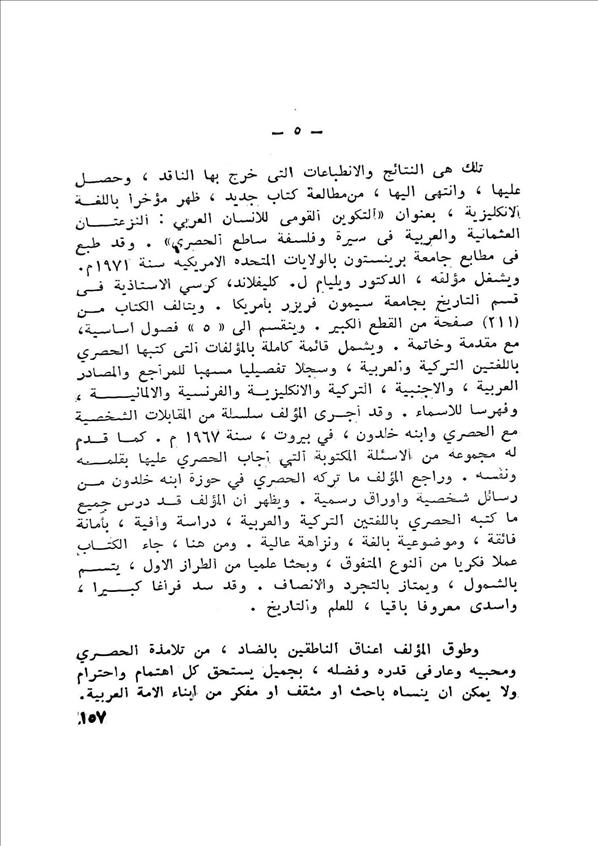 — ٥ —
تلك هى النتائج والانطباعات التى خرج بها الناقد ، وحصل
عليها ، وانتهى اليها ، من مطالعة كتاب جديد ، ظهر مؤخرا باللغة
الانكليزية ، بعنوان «التكوين القومى للانسان العربي : النزعتان
العثمانية والعربية فى سيرة وفلسفة ساطع الحصري» . وقد طبع
فى مطابع جامعة برينستون بالولايات المتحده الامريكية سنة ١٩٧١م.
ويشغل مؤلفه ، الدكتور ويليام ل. كليفلاند، كرسي الاستاذية فى
قسم التاريخ بجامعة سيمون فريزر بأمريكا . ويتالف الكتاب من
(٢١١) صفحة من القطع الكبير . وينقسم الى « ٥ » فصول اساسية،
مع مقدمة وخاتمة . ويشمل قائمة كاملة بالمؤلفات التى كتبها الحصري
باللغتين التركية والعربية ، وسجلا تفصيليا مسهبا للمراجع والمصادر
العربية ، والاجنبية ، التركية والانكليزية والفرنسية والالمانية ،
وفهرسا للاسماء . وقد أجرى المؤلف سلسلة من المقابلات الشخصية
مع الحصري وابنه خلدون ، في بيروت ، سنة ١٩٦٧ م . كما قدم
له مجموعه من الاسئلة المكتوبة التي أجاب الحصري عليها بقلمه
ونفسه . وراجع المؤلف ما تركه الحصري في حوزة ابنه خلدون من
رسائل شخصية واوراق رسمية . ويظهر أن المؤلف قد درس جميع
ما كتبه الحصري باللغتين التركية والعربية ، دراسة وافية ، بأمانة
فائقة ، وموضوعية بالغة ، ونزاهة عالية . ومن هنا ، جاء الكتاب
عملا فكريا من النوع المتفوق ، وبحثا علميا من الطراز الاول ، يتسم
بالشمول ، ويمتاز بالتجرد والانصاف . وقد سد فراغا كبيرا ،
واسدى معروفا باقيا ، للعلم والتاريخ .
وطوق المؤلف اعناق الناطقين بالضاد ، من تلامذة الحصري
ومحبيه وعارفى قدره وفضله ، بجميل يستحق كل اهتمام واحترام
ولا يمكن ان ينساه باحث او مثقف او مفكر من ابناء الامة العربية.
١٥٧